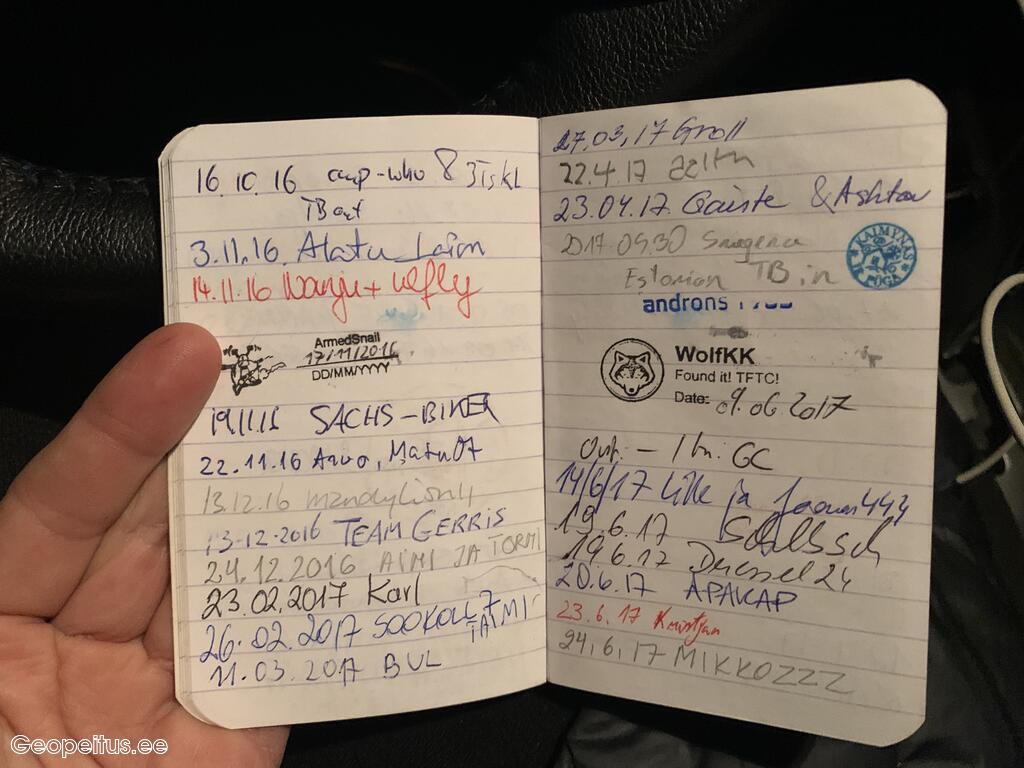 16.10.16 & 3iskl
TB out
3.11.16. Alatu
14.11.16 Wanju +
ArmedSnail
17/11/2016
DD/MM/YYYY
19.11.16 SACHS-BIKER
22.11.16 Arvo, Matu07
13.12.16
13.12.2016 TEAM GERRIS
24.12.2016 AIMI JA TORMI
23.02.2017 Karl
26.02.2017
11.03.2017 BUL
27.03.17 Groll
22.4.17
23.04.17 & Ashtar
2017.04.30
Estonian TB in
KAIMYNAS IR PUGE
androns
WolfKK
Found it! TFTC!
Date: 09.06.2017
Out: – In: GC
14/6/17 Lille ja Joonas444
19.6.17
19.6.17 Dressel24
20.6.17 APAKAP
23.6.17 Kristjan
24.6.17 MIKKOZZZ
Geopeitus.ee